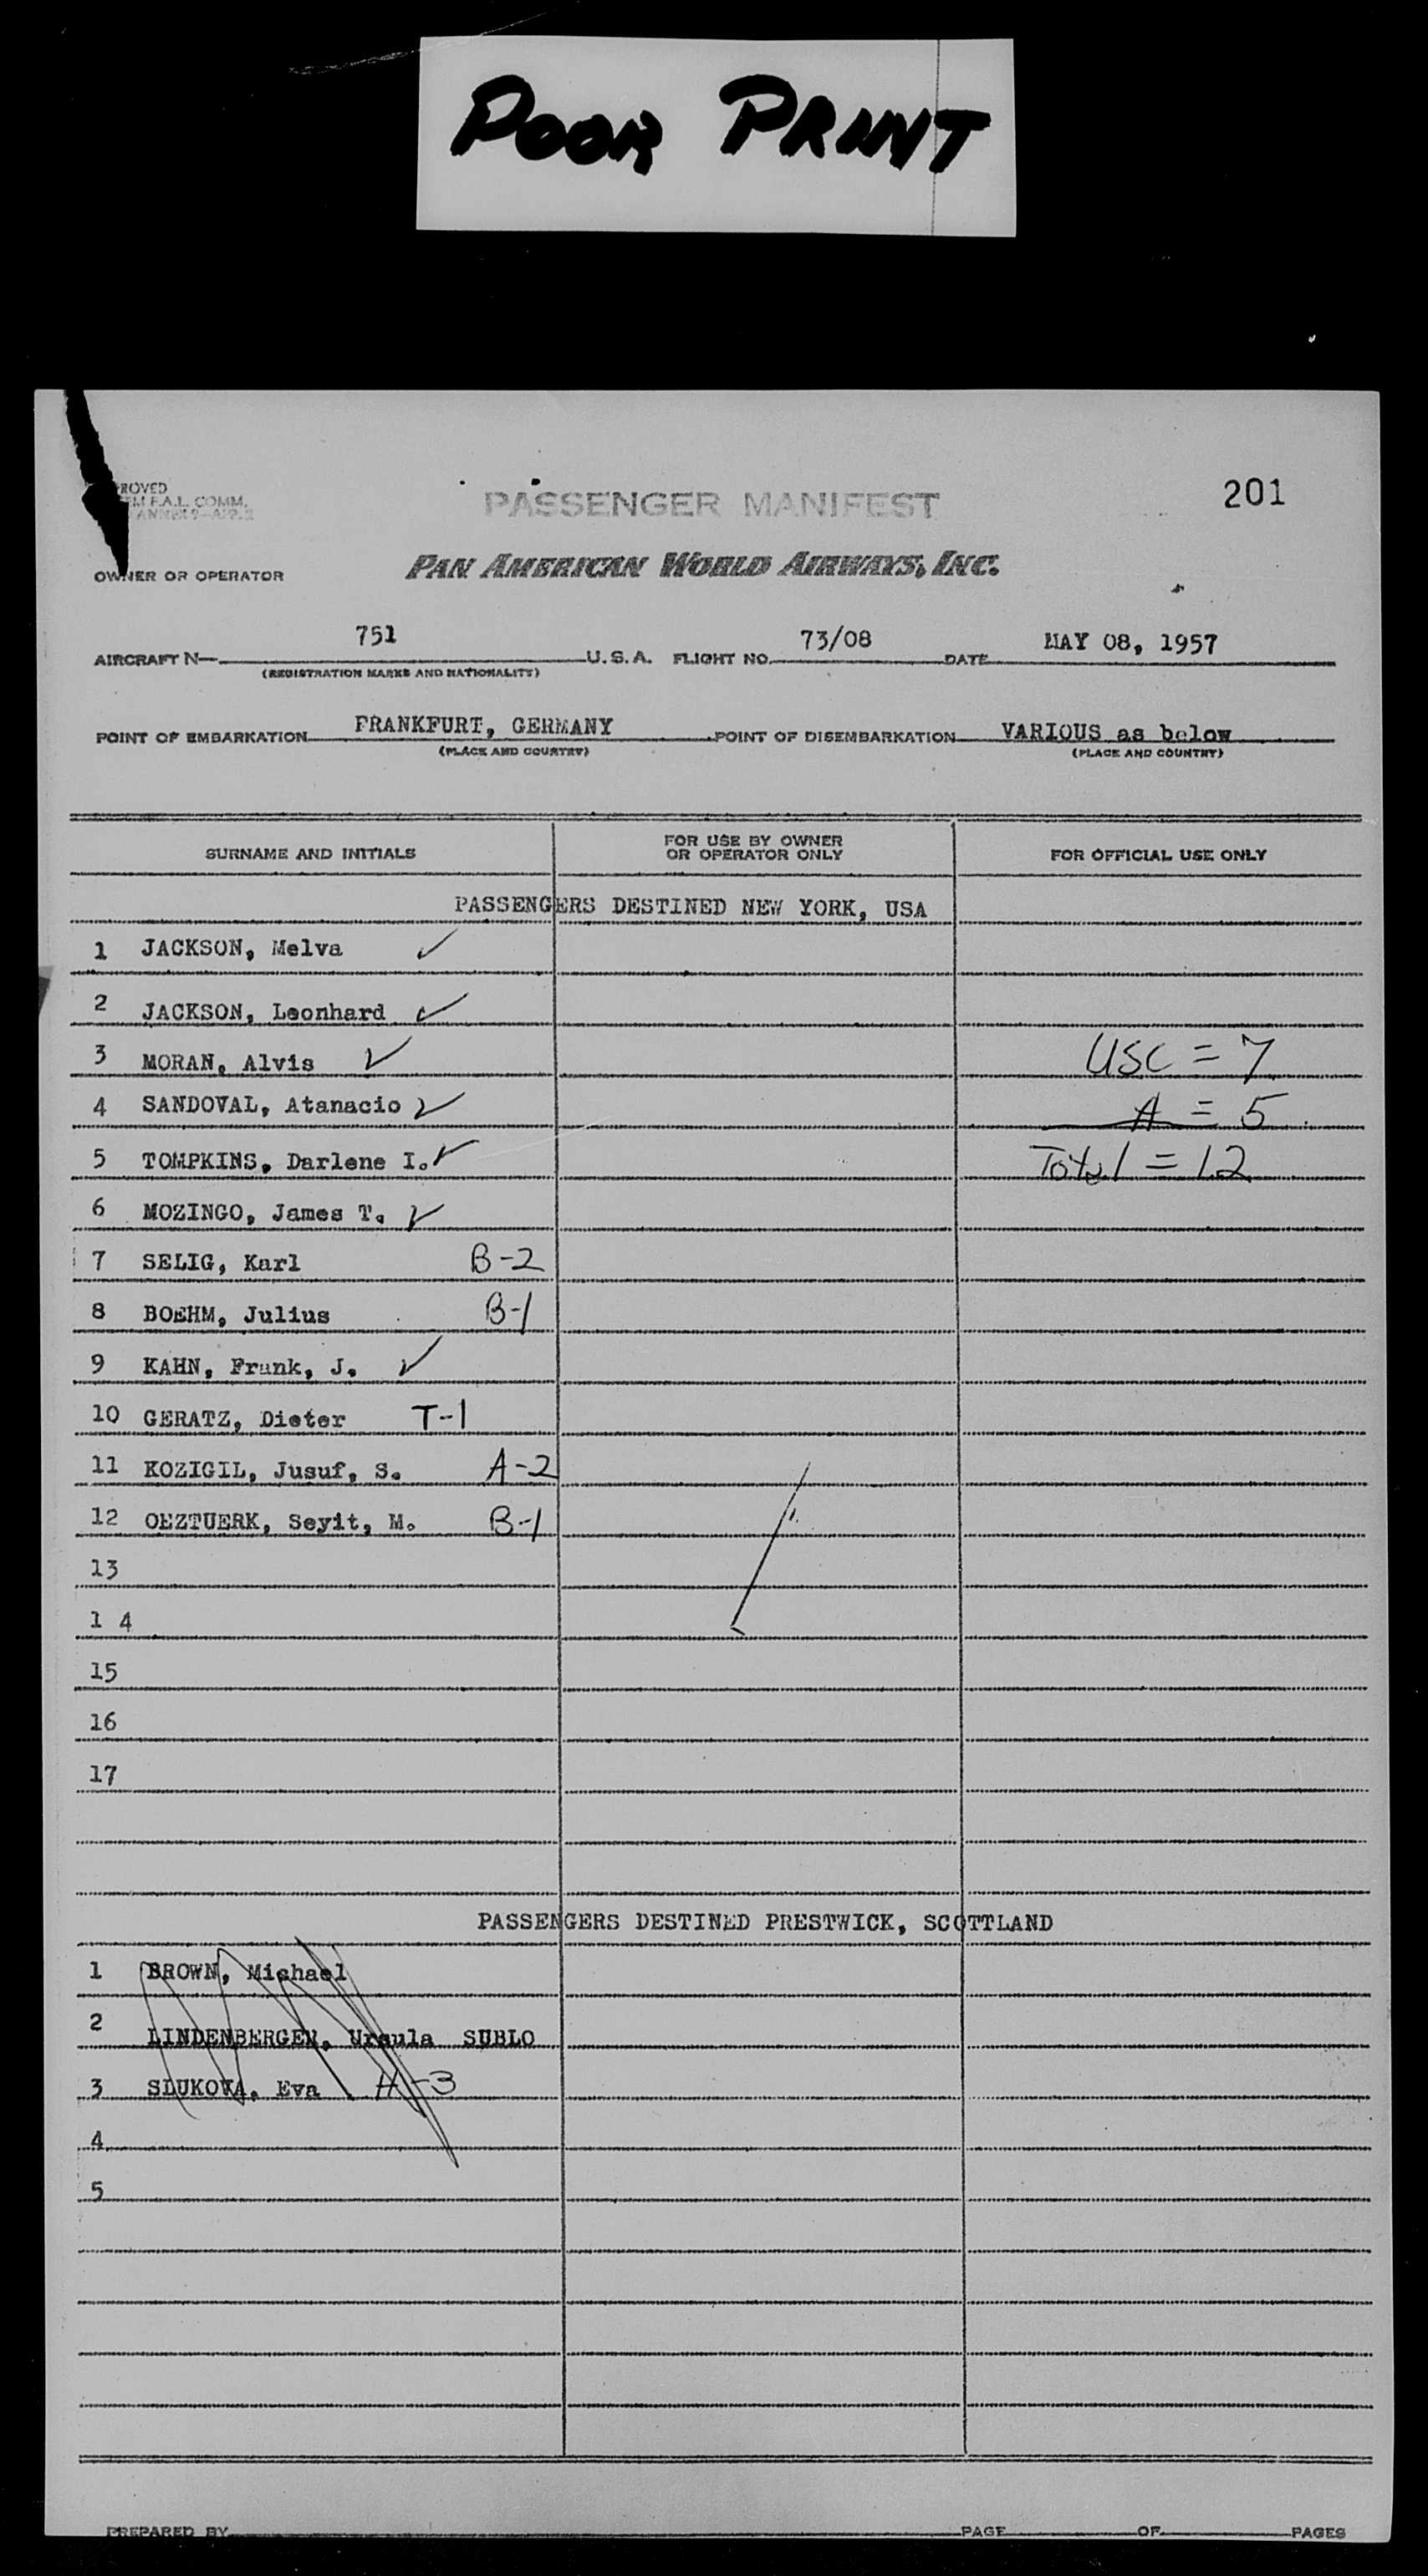 POOR PRINT
ROVED
F.A.L. COMM.
PASSENGER MANIFEST
201
OWNER OR OPERATOR
PAN AMERICAN WORLD AIRWAYS, INC.
AIRCRAFT N— 751 U.S.A. FLIGHT NO. 73/08 DATE MAY 08, 1957
(REGISTRATION MARKS AND NATIONALITY)
POINT OF EMBARKATION FRANKFURT, GERMANY POINT OF DISEMBARKATION VARIOUS as below
(PLACE AND COUNTRY) (PLACE AND COUNTRY)
SURNAME AND INITIALS FOR USE BY OWNER OR OPERATOR ONLY FOR OFFICIAL USE ONLY
PASSENGERS DESTINED NEW YORK, USA
1 JACKSON, Melva ✓
2 JACKSON, Leonhard ✓
3 MORAN, Alvis ✓ USC = 7
4 SANDOVAL, Atanacio ✓ A = 5
5 TOMPKINS, Darlene I. ✓ Total = 12
6 MOZINGO, James T. ✓
7 SELIG, Karl B-2
8 BOEHM, Julius B-1
9 KAHN, Frank, J. ✓
10 GERATZ, Dieter T-1
11 KOZIGIL, Jusuf, S. A-2
12 OEZTUERK, Seyit, M. B-1
13
1 4
15
16
17
PASSENGERS DESTINED PRESTWICK, SCOTTLAND
1 BROWN, Michael
2 LINDENBERGER, Ursula SUBLO
3 SLUKOVA, Eva H-3
4
5
PREPARED BY PAGE OF PAGES